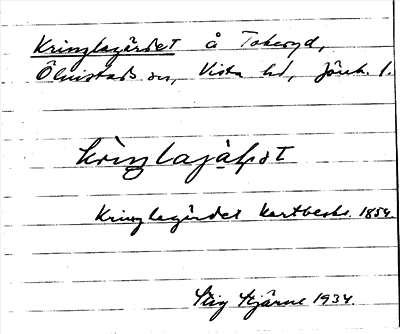 Kringlagärdet å Takeryd,
Ölmstads sn, Vista hd, Jönk. l.
Kringlagärdet kartbeskr. 1854.
Stig Stjärne 1934.